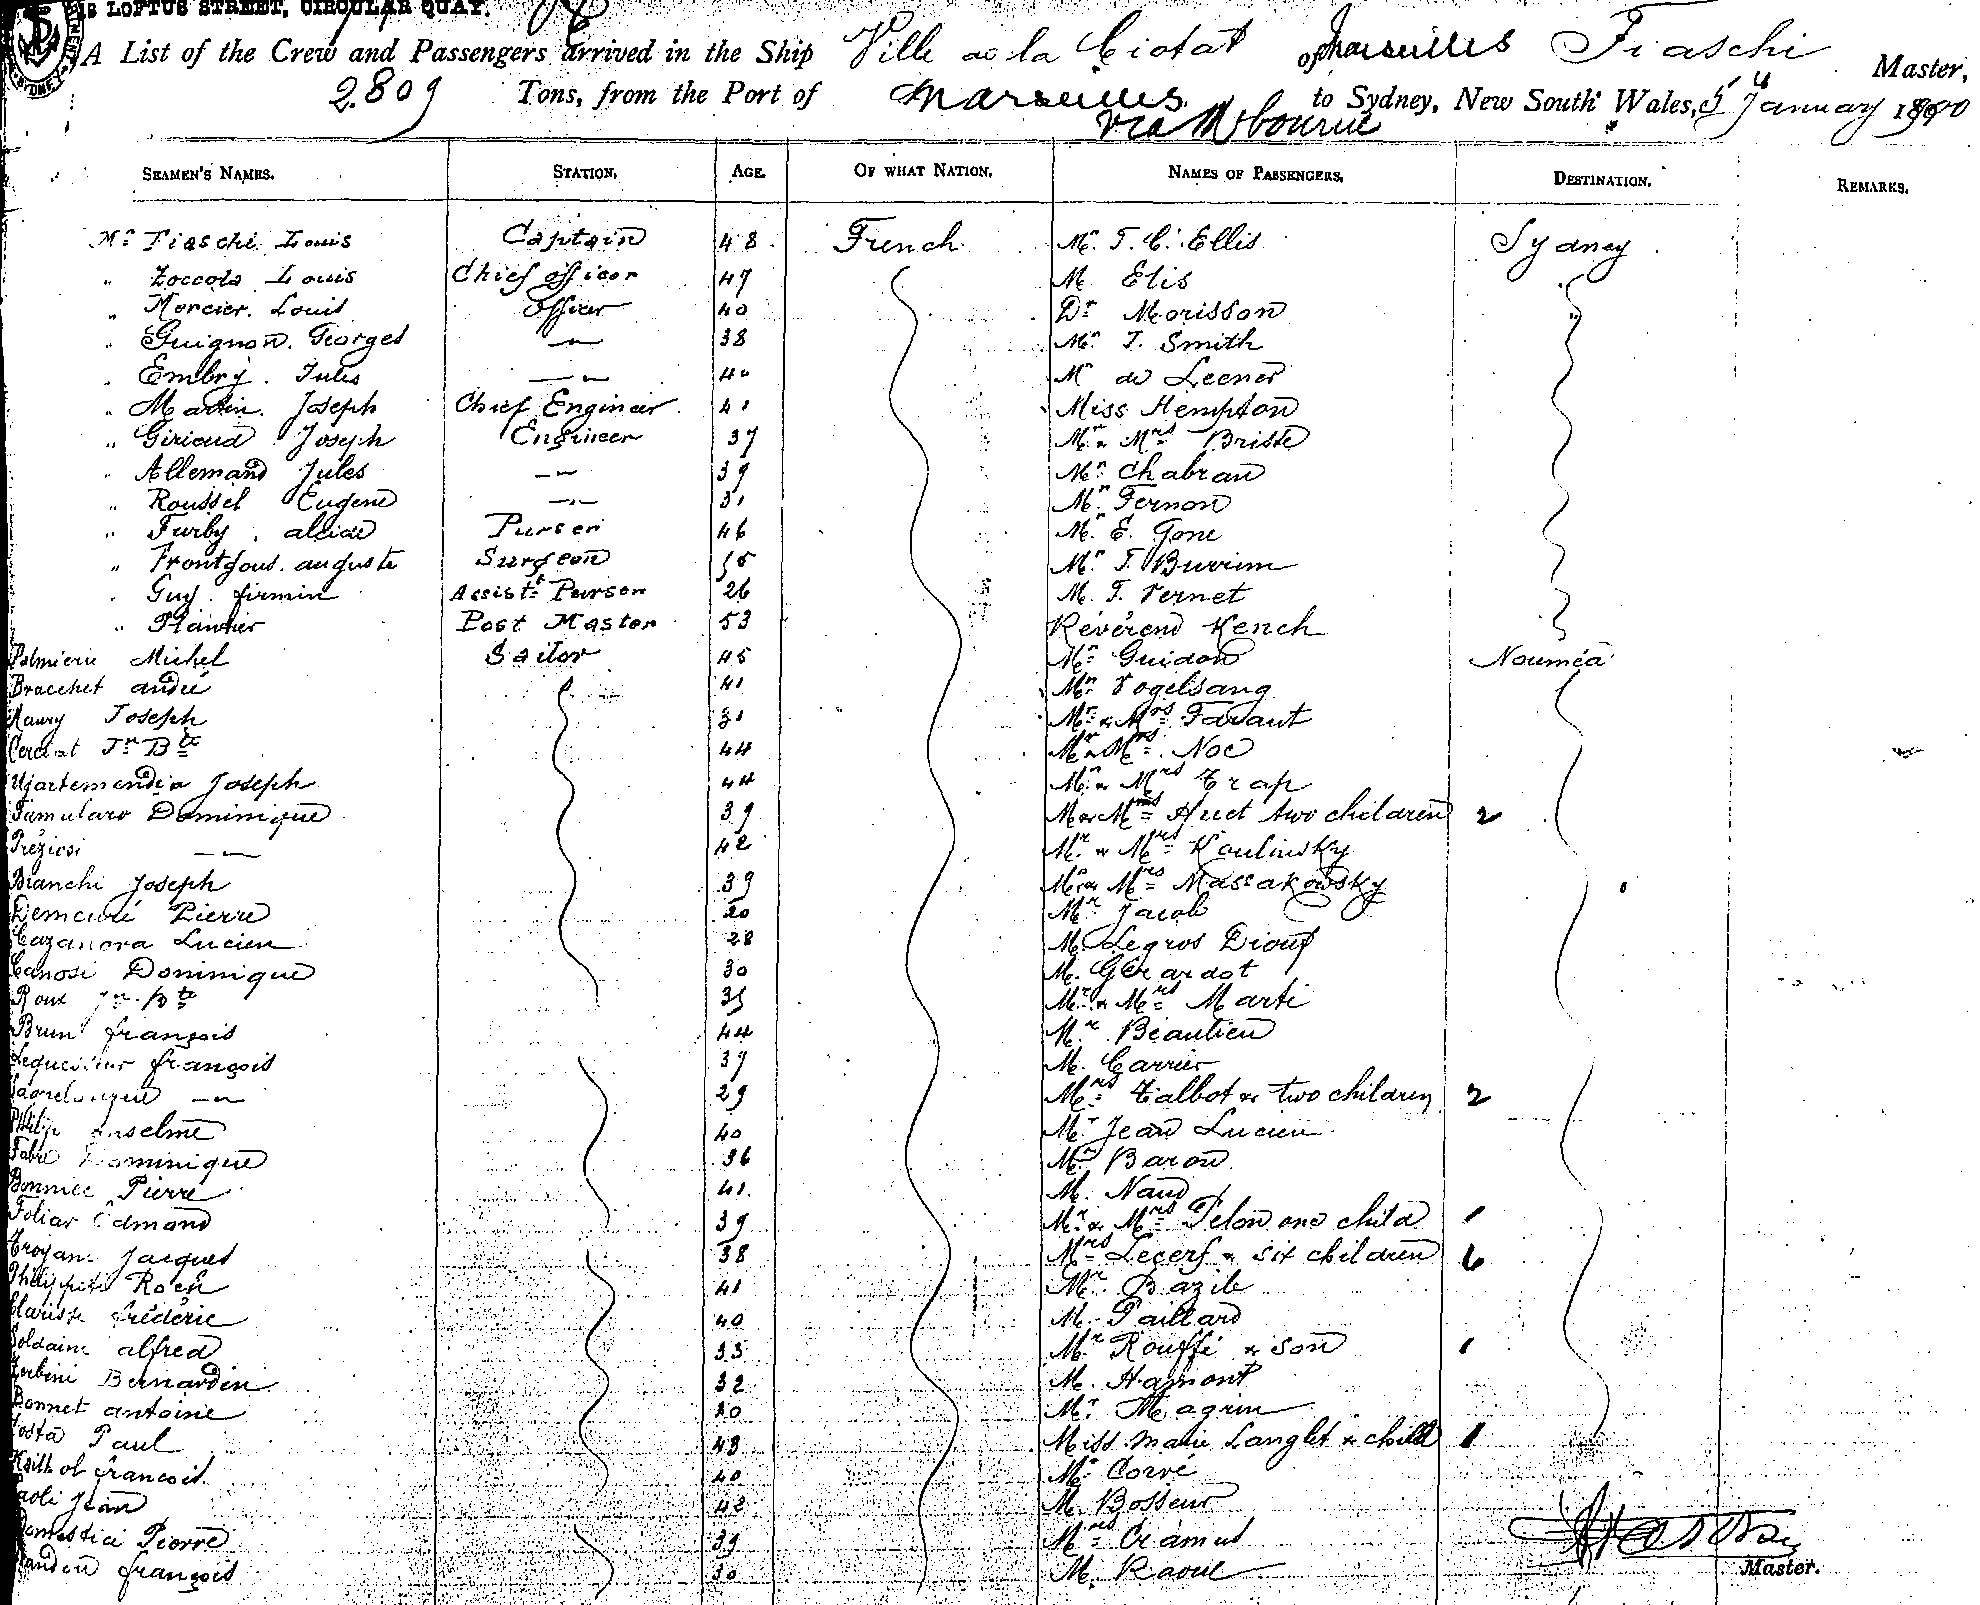 LOFTUS STREET, CIRCULAR QUAY.
A List of the Crew and Passengers arrived in the Ship Ville de la Ciotat of Marseilles Fiaschi Master,
2.809 Tons, from the Port of Marseilles to Sydney, New South Wales, 5 January 1890
via Mbourne
SEAMEN'S NAMES. STATION. AGE. OF WHAT NATION. NAMES OF PASSENGERS. DESTINATION. REMARKS.
Mr Fiaschi Louis Captain 48 French Mr. T. C. Ellis Sydney
" Zoccola Louis Chief officer 47 M. Elis
" Mercier. Louis officer 40 Dr Morisson
" Guignon. Georges —"— 38 Mr. T. Smith
" Embry. Jules —"— 40 Mr de Leener
" Martin. Joseph Chief Engineer 41 Miss Hempton
" Giriaud Joseph Engineer 37 Mr & Mrs Briste
" Allemand Jules —"— 39 Mr Chabran
" Roussel Eugene —"— 31 Mr Fernon
" Furby. alcide Purser 46 M. E. Gone
" Frontgous. auguste Surgeon 35 Mr T. Burrim
" Guy. firmin Assistt Purser 26 M. T. Vernet
" Plantier Post Master 53 Révérend Kench
Palmieri Michel Sailor 45 Mr Guidon Nouméa
Bracchet andré 41 Mr Vogelsang
Maury Joseph 31 Mr & Mrs Favaut
Jn Bte 44 Mr & Mrs Noc
Ugartemendia Joseph 44 Mr & Mrs Trap
Famularo Dominique 39 Mr & Mrs Huet two children 2
Préziosi —"— 42 Mr & Mrs Koulinsky
Bianchi Joseph 39 Mr & Mrs Massakowsky
Demeuré Pierre 20 Mr Jacob
Cazanova Lucien 28 M. Legros Diouf
Canosi Dominique 30 M. Gérardot
Roux Jn Bte 35 Mr & Mrs Marti
Brun françois 44 Mr Beaulieu
Lequesteur françois 37 M. Carrier
—"— 29 Mrs Talbot & two children 2
Philip anselme 40 Mr Jean Lucien
Fabre Dominique 36 Mr Baron
Bonniec Pierre 41 M. Naud
Foliar Edmond 39 Mr & Mrs Pelon one child 1
Troyan Jacques 38 Mrs Lecerf & six children 6
Roch 41 Mr Bazile
Clarisse frédéric 40 M. Paillard
Soldaini alfred 33 Mr Rouffi & son 1
Zerbini Bernardin 32 M. Hamont
Bonnet antoine 40 Mr Magrin
Costa Paul 43 Miss marie Langlet & child 1
françois 40 Mr Corvé
Paoli Jean 42 M. Bosseur
Pierre 39 Mrs Cramut
françois 30 M. Raoul
Master.